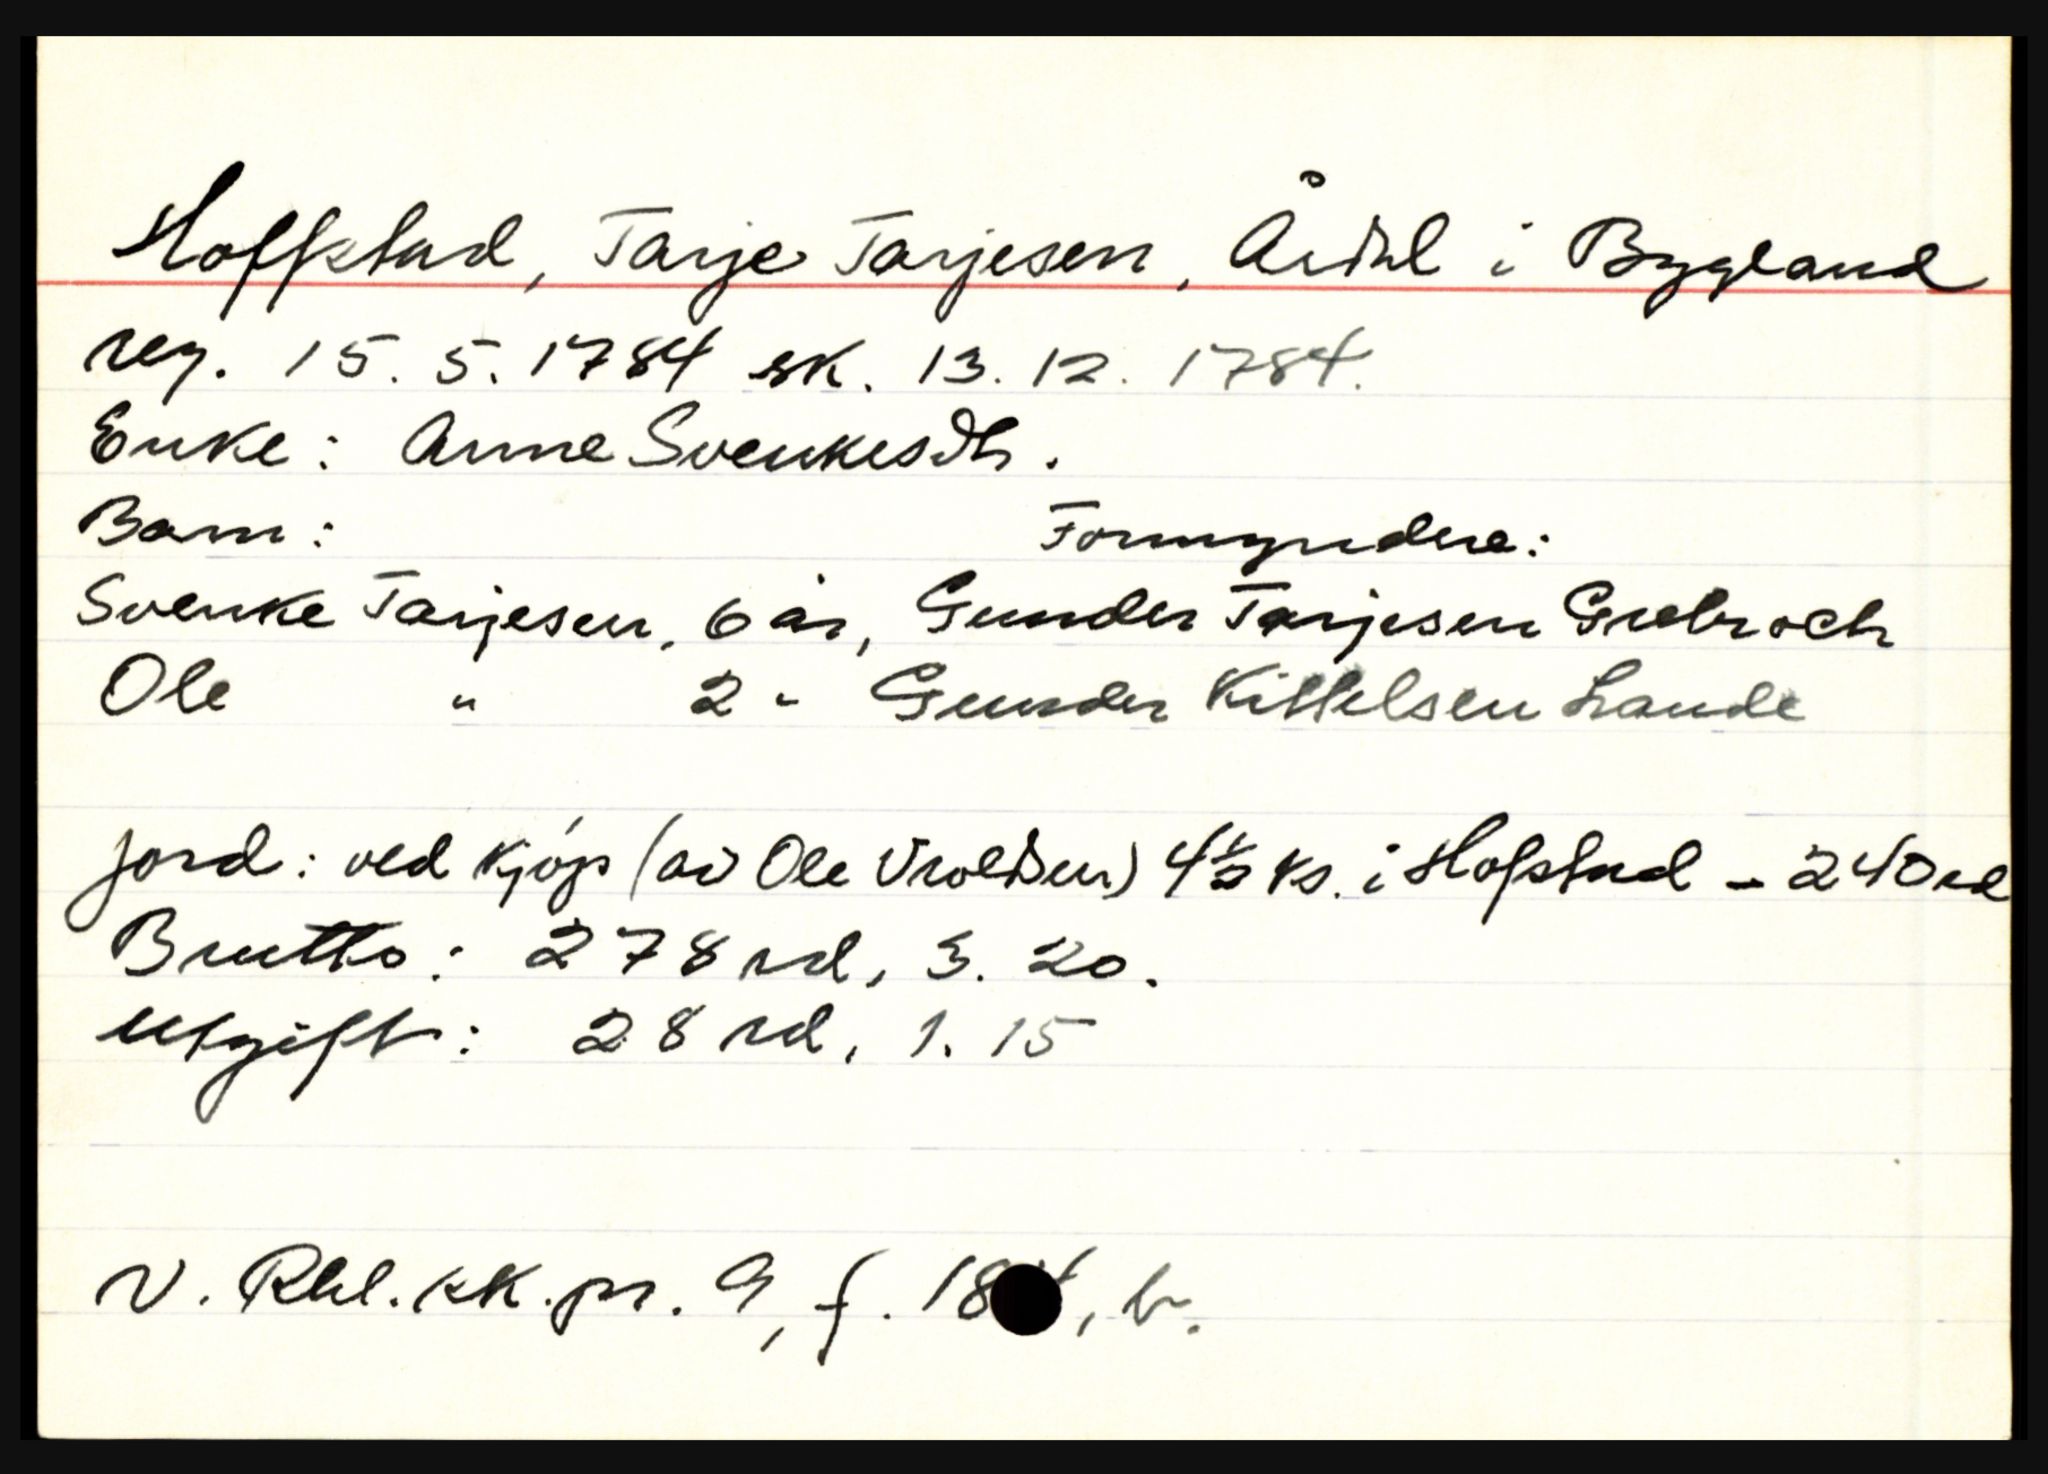 Hoffstad, Tarje Tarjesen, Årdal i Bygland
reg. 15. 5. 1784 sk. 13. 12. 1784.
Enke: Anne Svenkesdtr.
Barn: Formyndere:
Svenke Tarjesen, 6 år, Gunder Tarjesen Grebrock
Ole " 2 " Gunder Kittelsen Lande
Jord: ved kjöp (av Ole Vroldsen) 4½ ks. i Hofstad - 240 rd
Brutto: 278 rd, 3. 20.
Utgift: 28 rd, 1. 15
V. Rbl. sk. pr. 9, f. 18, b.